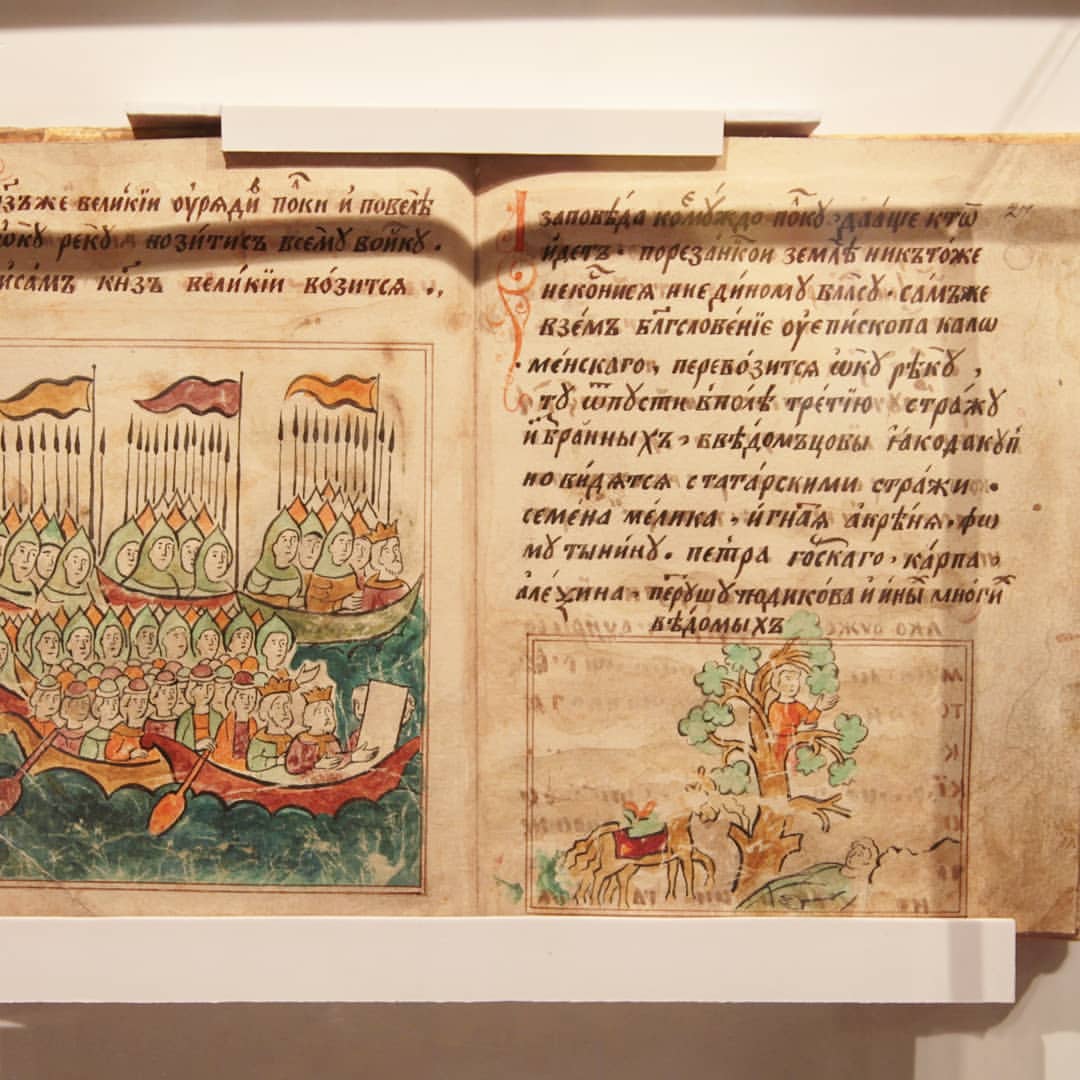 зъже великїи ѹрѧди по́ки и҆ повелѣ
ѡ҆кꙋ рекꙋ возитисъ всемꙋ войкꙋ .
и҆самъ кн҃зъ великїи во́зится .,
заповѣда комꙋждо по́кꙋ даа҆ще кто̑ 27
и҆детъ . порезан̾кои землѣ никътоже
некосниⷭ҇ся ниединомꙋ власꙋ . самъже
вземъ блг҃словенїе ѹ҆епископа кало
менскаго, перевозится ѡ҆кꙋ рѣкꙋ ,
тꙋ ѿпꙋсти вполѣ третїю стражꙋ
и҆збранныхъ, введомъцовы ꙗ҆кодакꙋп
но видятся статарскими стражи .
семена мелика , и҆гнаⷮя а҆креня , фѡ
мꙋ тынинꙋ . петра горⷭ҇каго , карпа ,
але ѯина , петрꙋшꙋ чюдикова и҆ и҆ны̑ мно́гиⷯ
вѣдомыхъ